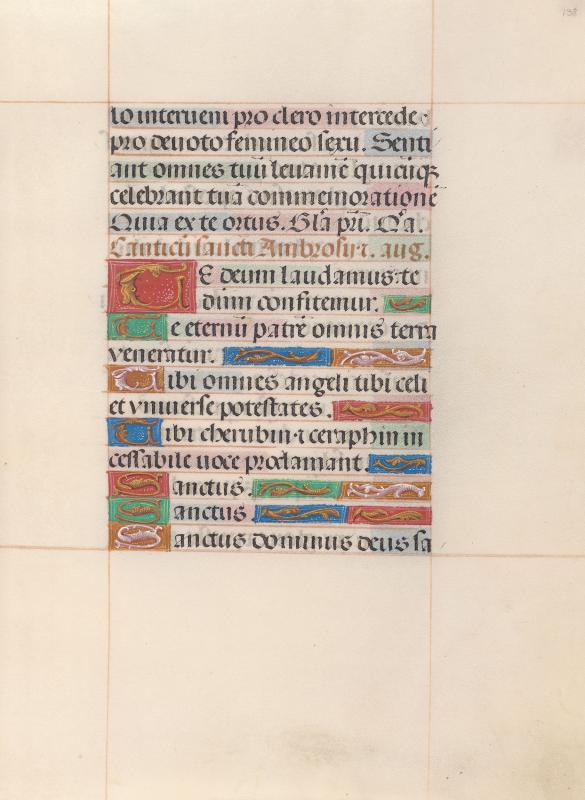 138
lo interueni pro clero intercede
pro deuoto femineo sexu. Senti
ant omnes tuū leuamē quicūqꝫ
celebrant tuā commemorationē
Quia ex te ortus. Gl̄a pr̄i. Qꝛa.
Canticū sancti Ambrosij ⁊. aug.
TE deum laudamus: te
dn̄m confitemur.
Te eternū patrē omnis terra
veneratur.
Tibi omnes angeli tibi celi
et vniuerse potestates.
Tibi cherubin ⁊ ceraphin in
cessabile uoce proclamant.
Sanctus.
Sanctus
Sanctus dominus deus sa